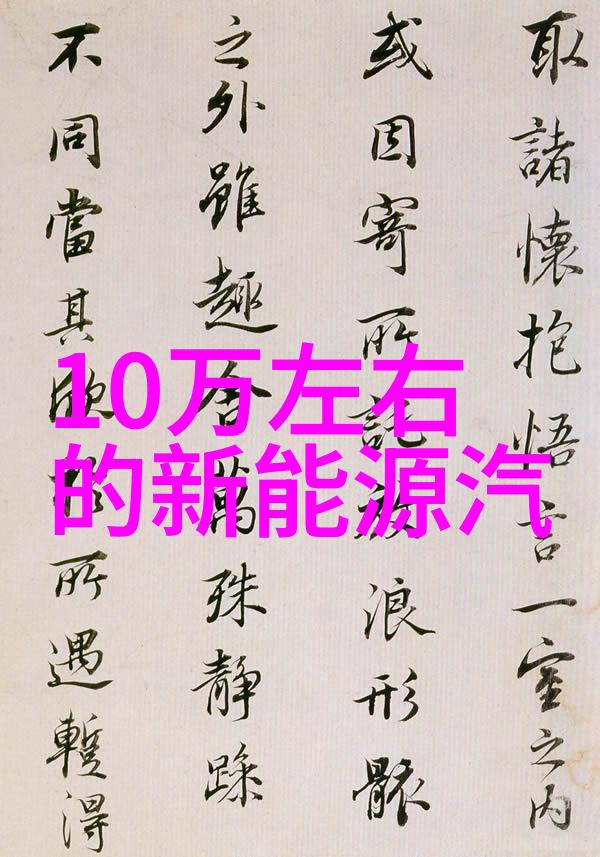 10万左右
的新能源汽
取諸懷抱悟言一室之内
或因寄所託放浪形骸
之外雖趣舍萬殊靜躁
不同當其欣於所遇暫得